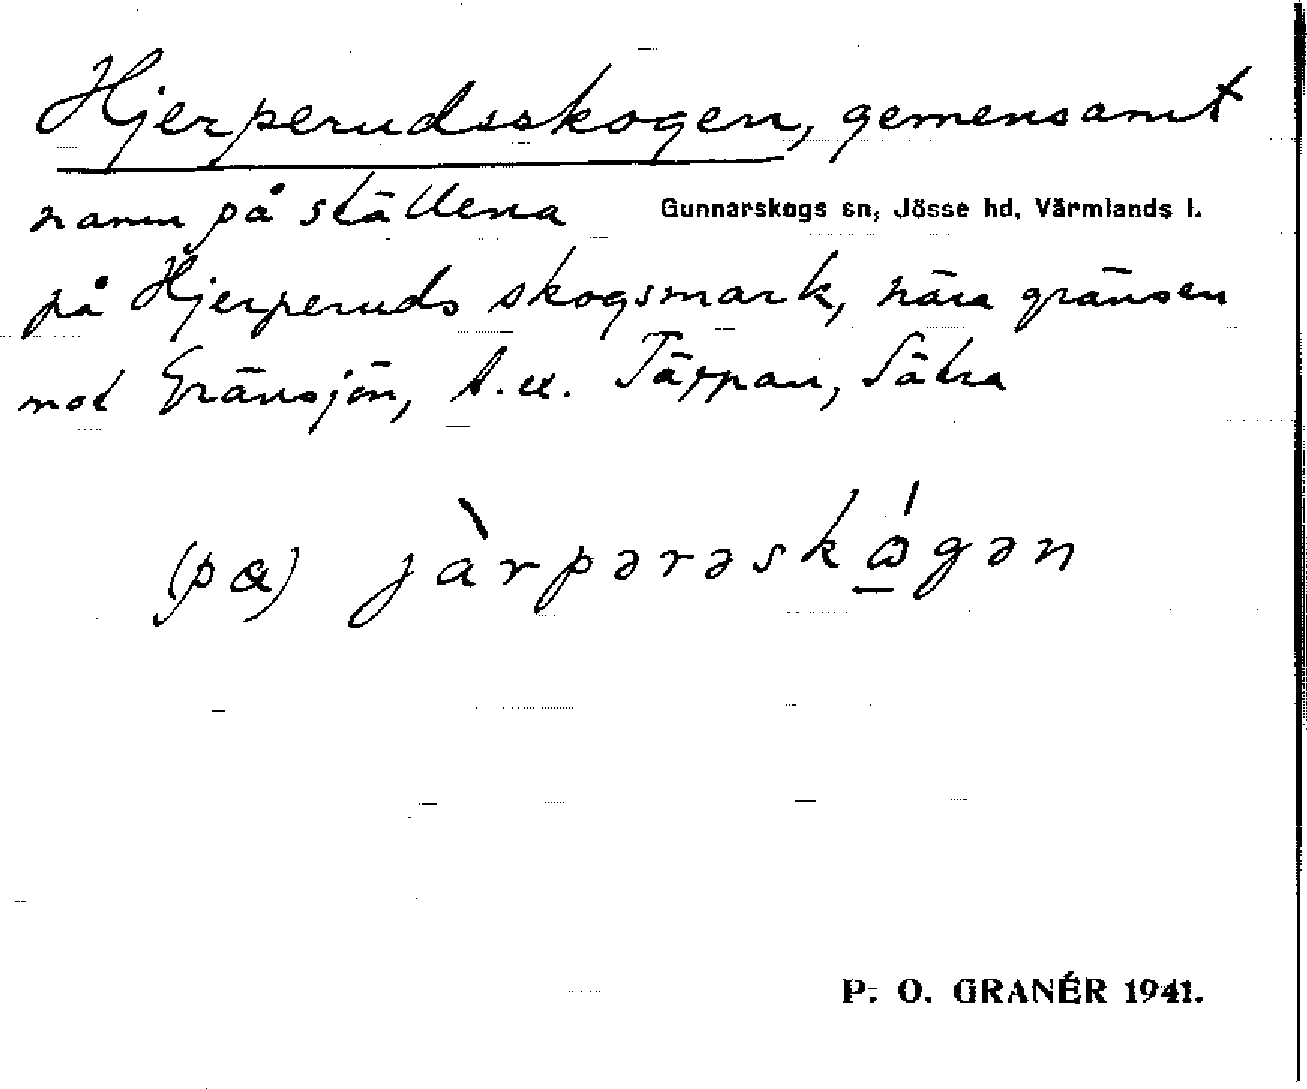 Hjerperudsskogen, gemensamt
namn på ställena
Gunnarskogs sn, Jösse hd, Värmlands l.
på Hjerperuds skogsmark, nära gränsen
mot Gränsjön, t.ex. Tärpan, Sätra
(pɑ) jàrpərəskɷ́gən
P. O. GRANÉR 1941.